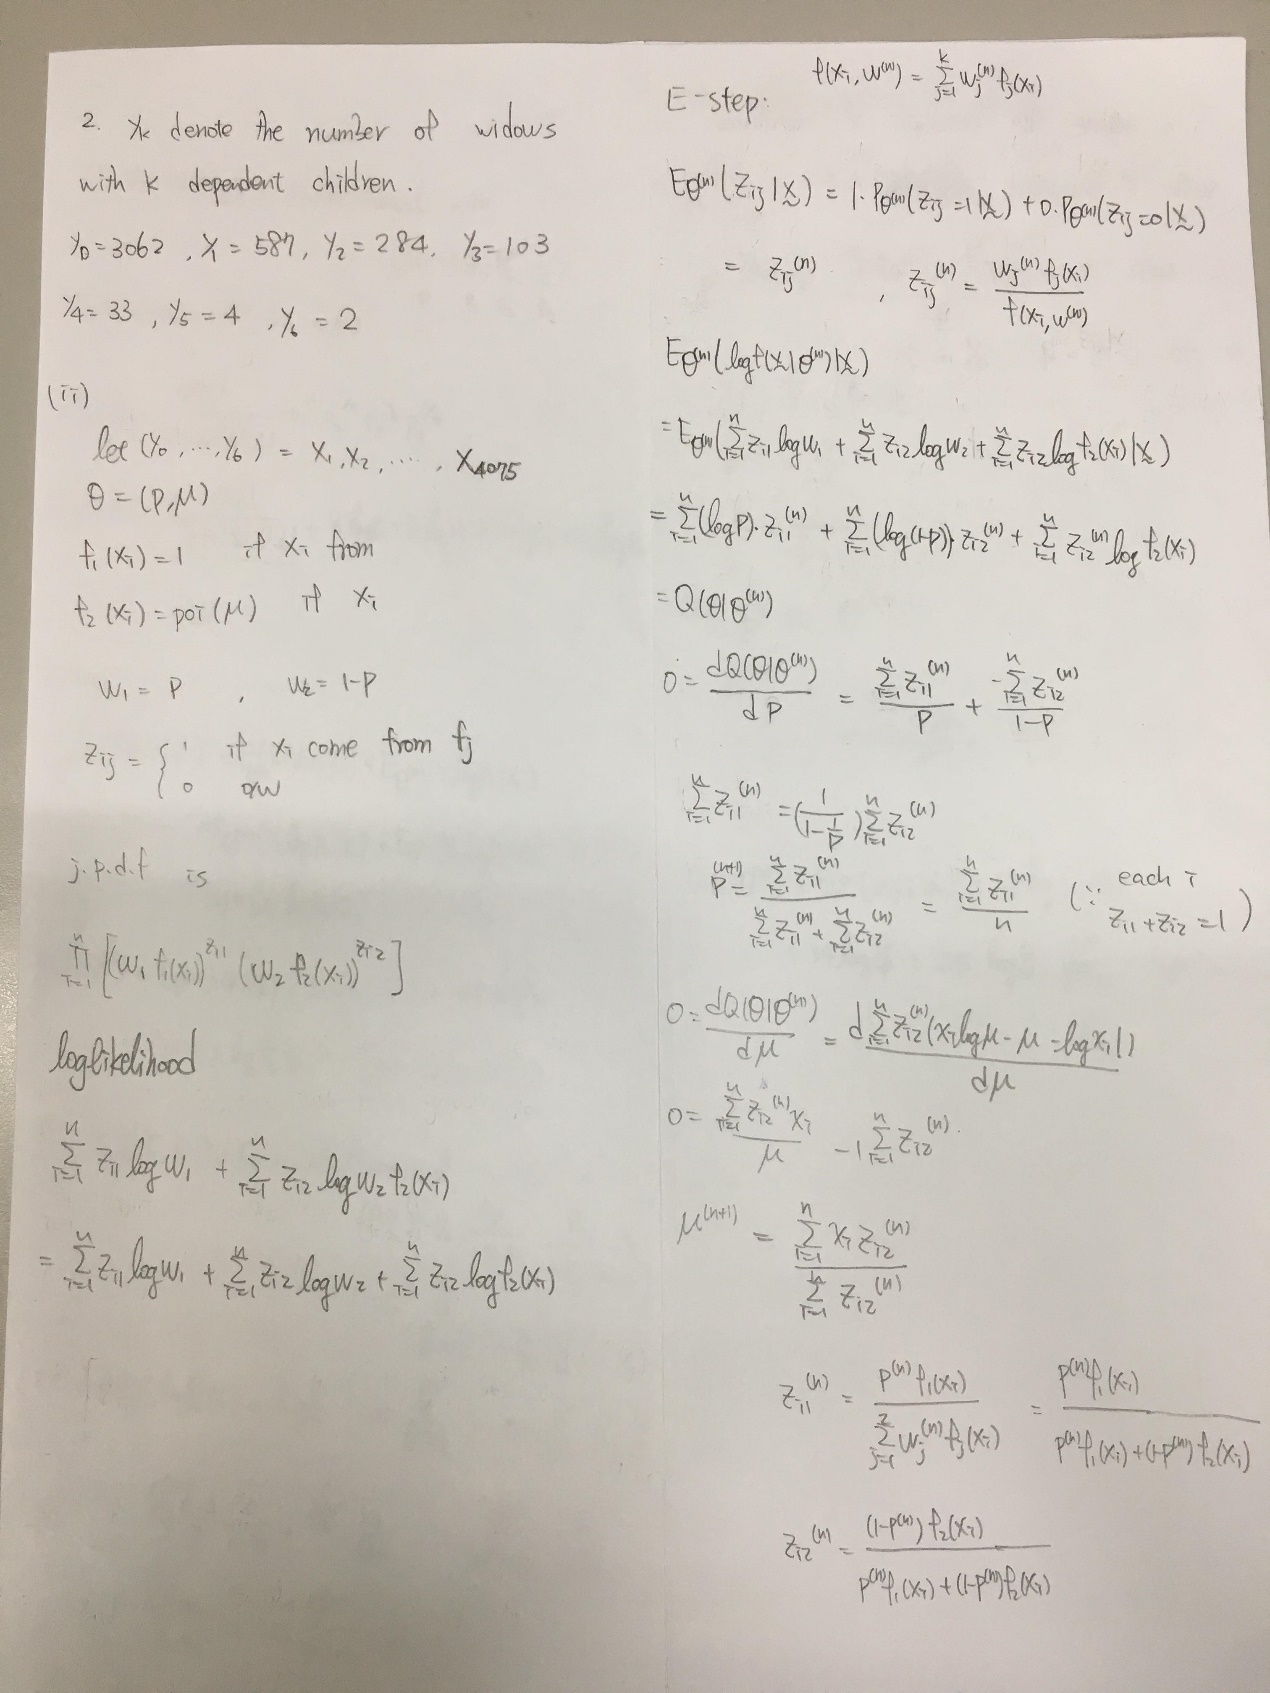 2. Yk denote the number of widows
with k dependent children.
Y0 = 3062 , Y1 = 587, Y2 = 284, Y3 = 103
Y4 = 33 , Y5 = 4 , Y6 = 2
(ii)
let (Y0, ..., Y6) = X1, X2, ...., X4075
θ = (P, μ)
f1(Xi) = 1 if Xi from
f2(Xi) = poi(μ) if Xi
W1 = P , W2 = 1-P
Zij = { 1 if Xi come from fj
0 o/w
j.p.d.f is
∏_{i=1}^{n} [(W1 f1(Xi))^{Zi1} (W2 f2(Xi))^{Zi2}]
loglikelihood
∑_{i=1}^{n} Zi1 log W1 + ∑_{i=1}^{n} Zi2 log W2 f2(Xi)
= ∑_{i=1}^{n} Zi1 log W1 + ∑_{i=1}^{n} Zi2 log W2 + ∑_{i=1}^{n} Zi2 log f2(Xi)
f(Xi, W^{(n)}) = ∑_{j=1}^{k} Wj^{(n)} fj(Xi)
E-step:
E_{θ^{(n)}}(Zij | X) = 1·P_{θ^{(n)}}(Zij = 1 | X) + 0·P_{θ^{(n)}}(Zij = 0 | X)
= Zij^{(n)} , Zij^{(n)} = Wj^{(n)} fj(Xi) / f(Xi, W^{(n)})
E_{θ^{(n)}}(log f(X | θ^{(n)}) | X)
= E_{θ^{(n)}}(∑_{i=1}^{n} Zi1 log W1 + ∑_{i=1}^{n} Zi2 log W2 + ∑_{i=1}^{n} Zi2 log f2(Xi) | X)
= ∑_{i=1}^{n} (log P)·Zi1^{(n)} + ∑_{i=1}^{n} (log(1-P))·Zi2^{(n)} + ∑_{i=1}^{n} Zi2^{(n)} log f2(Xi)
= Q(θ|θ^{(n)})
0 = dQ(θ|θ^{(n)}) / dP = ∑_{i=1}^{n} Zi1^{(n)} / P + -∑_{i=1}^{n} Zi2^{(n)} / 1-P
∑_{i=1}^{n} Zi1^{(n)} = (1 / (1 - 1/P)) ∑_{i=1}^{n} Zi2^{(n)}
P^{(n+1)} = ∑_{i=1}^{n} Zi1^{(n)} / (∑_{i=1}^{n} Zi1^{(n)} + ∑_{i=1}^{n} Zi2^{(n)}) = ∑_{i=1}^{n} Zi1^{(n)} / n (∵ each i Zi1 + Zi2 = 1)
0 = dQ(θ|θ^{(n)}) / dμ = d∑_{i=1}^{n} Zi2^{(n)} (Xi log μ - μ - log Xi!) / dμ
0 = ∑_{i=1}^{n} Zi2^{(n)} Xi / μ - 1∑_{i=1}^{n} Zi2^{(n)}.
μ^{(n+1)} = ∑_{i=1}^{n} Xi Zi2^{(n)} / ∑_{i=1}^{n} Zi2^{(n)}
Zi1^{(n)} = P^{(n)} f1(Xi) / ∑_{j=1}^{2} Wj^{(n)} fj(Xi) = P^{(n)} f1(Xi) / P^{(n)} f1(Xi) + (1-P^{(n)}) f2(Xi)
Zi2^{(n)} = (1-P^{(n)}) f2(Xi) / P^{(n)} f1(Xi) + (1-P^{(n)}) f2(Xi)